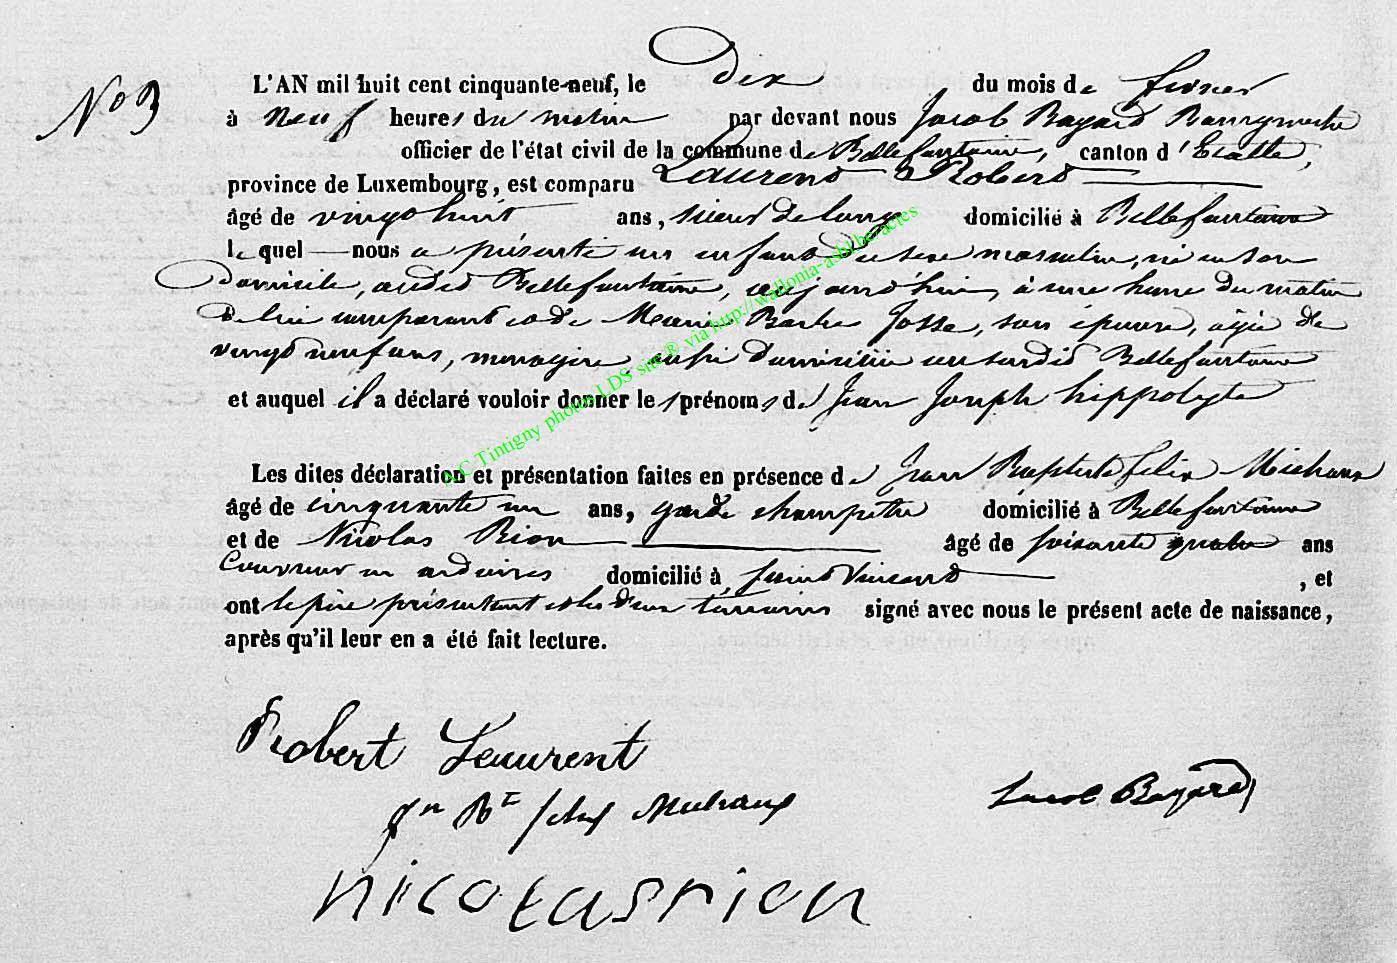 No 3
L'AN mil huit cent cinquante-neuf, le dix du mois de fevrier
à neuf heures du matin par devant nous Jacob Bayard Bourgmestre
officier de l'état civil de la commune de Bellefontaine, canton d'Etalle,
province de Luxembourg, est comparu Laurent Robert
âgé de vingt huit ans, sieur de long domicilié à Bellefontaine
lequel nous a présenté un enfant de sexe masculin, né en son
domicile, audit Bellefontaine, aujourd'hui, à une heure du matin
de lui comparant et de Marie Barbe Josse, son épouse, agée de
vingt neuf ans, menagère, aussi domiciliée au susdit Bellefontaine
et auquel il a déclaré vouloir donner les prénoms de Jean Joseph hippolyte
Les dites déclaration et présentation faites en présence de Jean Baptiste felix Michaux
âgé de cinquante un ans, garde champêtre domicilié à Bellefontaine
et de Nicolas Rion âgé de soixante quatre ans
Couvreur en ardoises domicilié à Saint Vincent , et
ont le père présentant et les deux témoins signé avec nous le présent acte de naissance,
après qu'il leur en a été fait lecture.
Robert Laurent
Jn Bte felix Michaux
Jacob Bayard
nicolas rion
AC Tintigny photos LDS site® via http://wallonia-asbl heracles